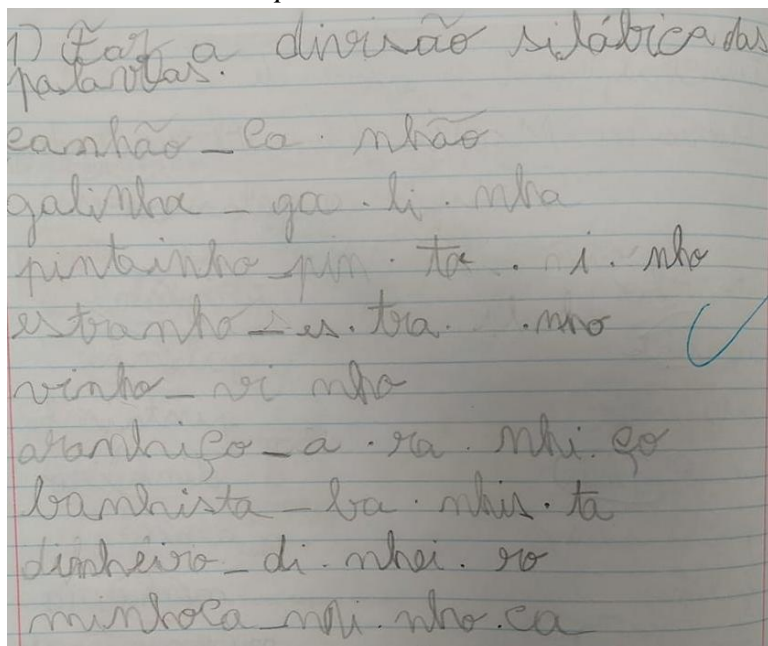 1) Faz a divisão silábica das
palavras.
canhão - ca . nhão
galinha - ga . li . nha
pintainho - pin . ta . i . nho
estranho - es . tra . . nho
vinho - vi nho
aranhiço - a . ra . nhi . ço
banhista - ba . nhis . ta
dinheiro - di . nhei . ro
minhoca - mi . nho . ca